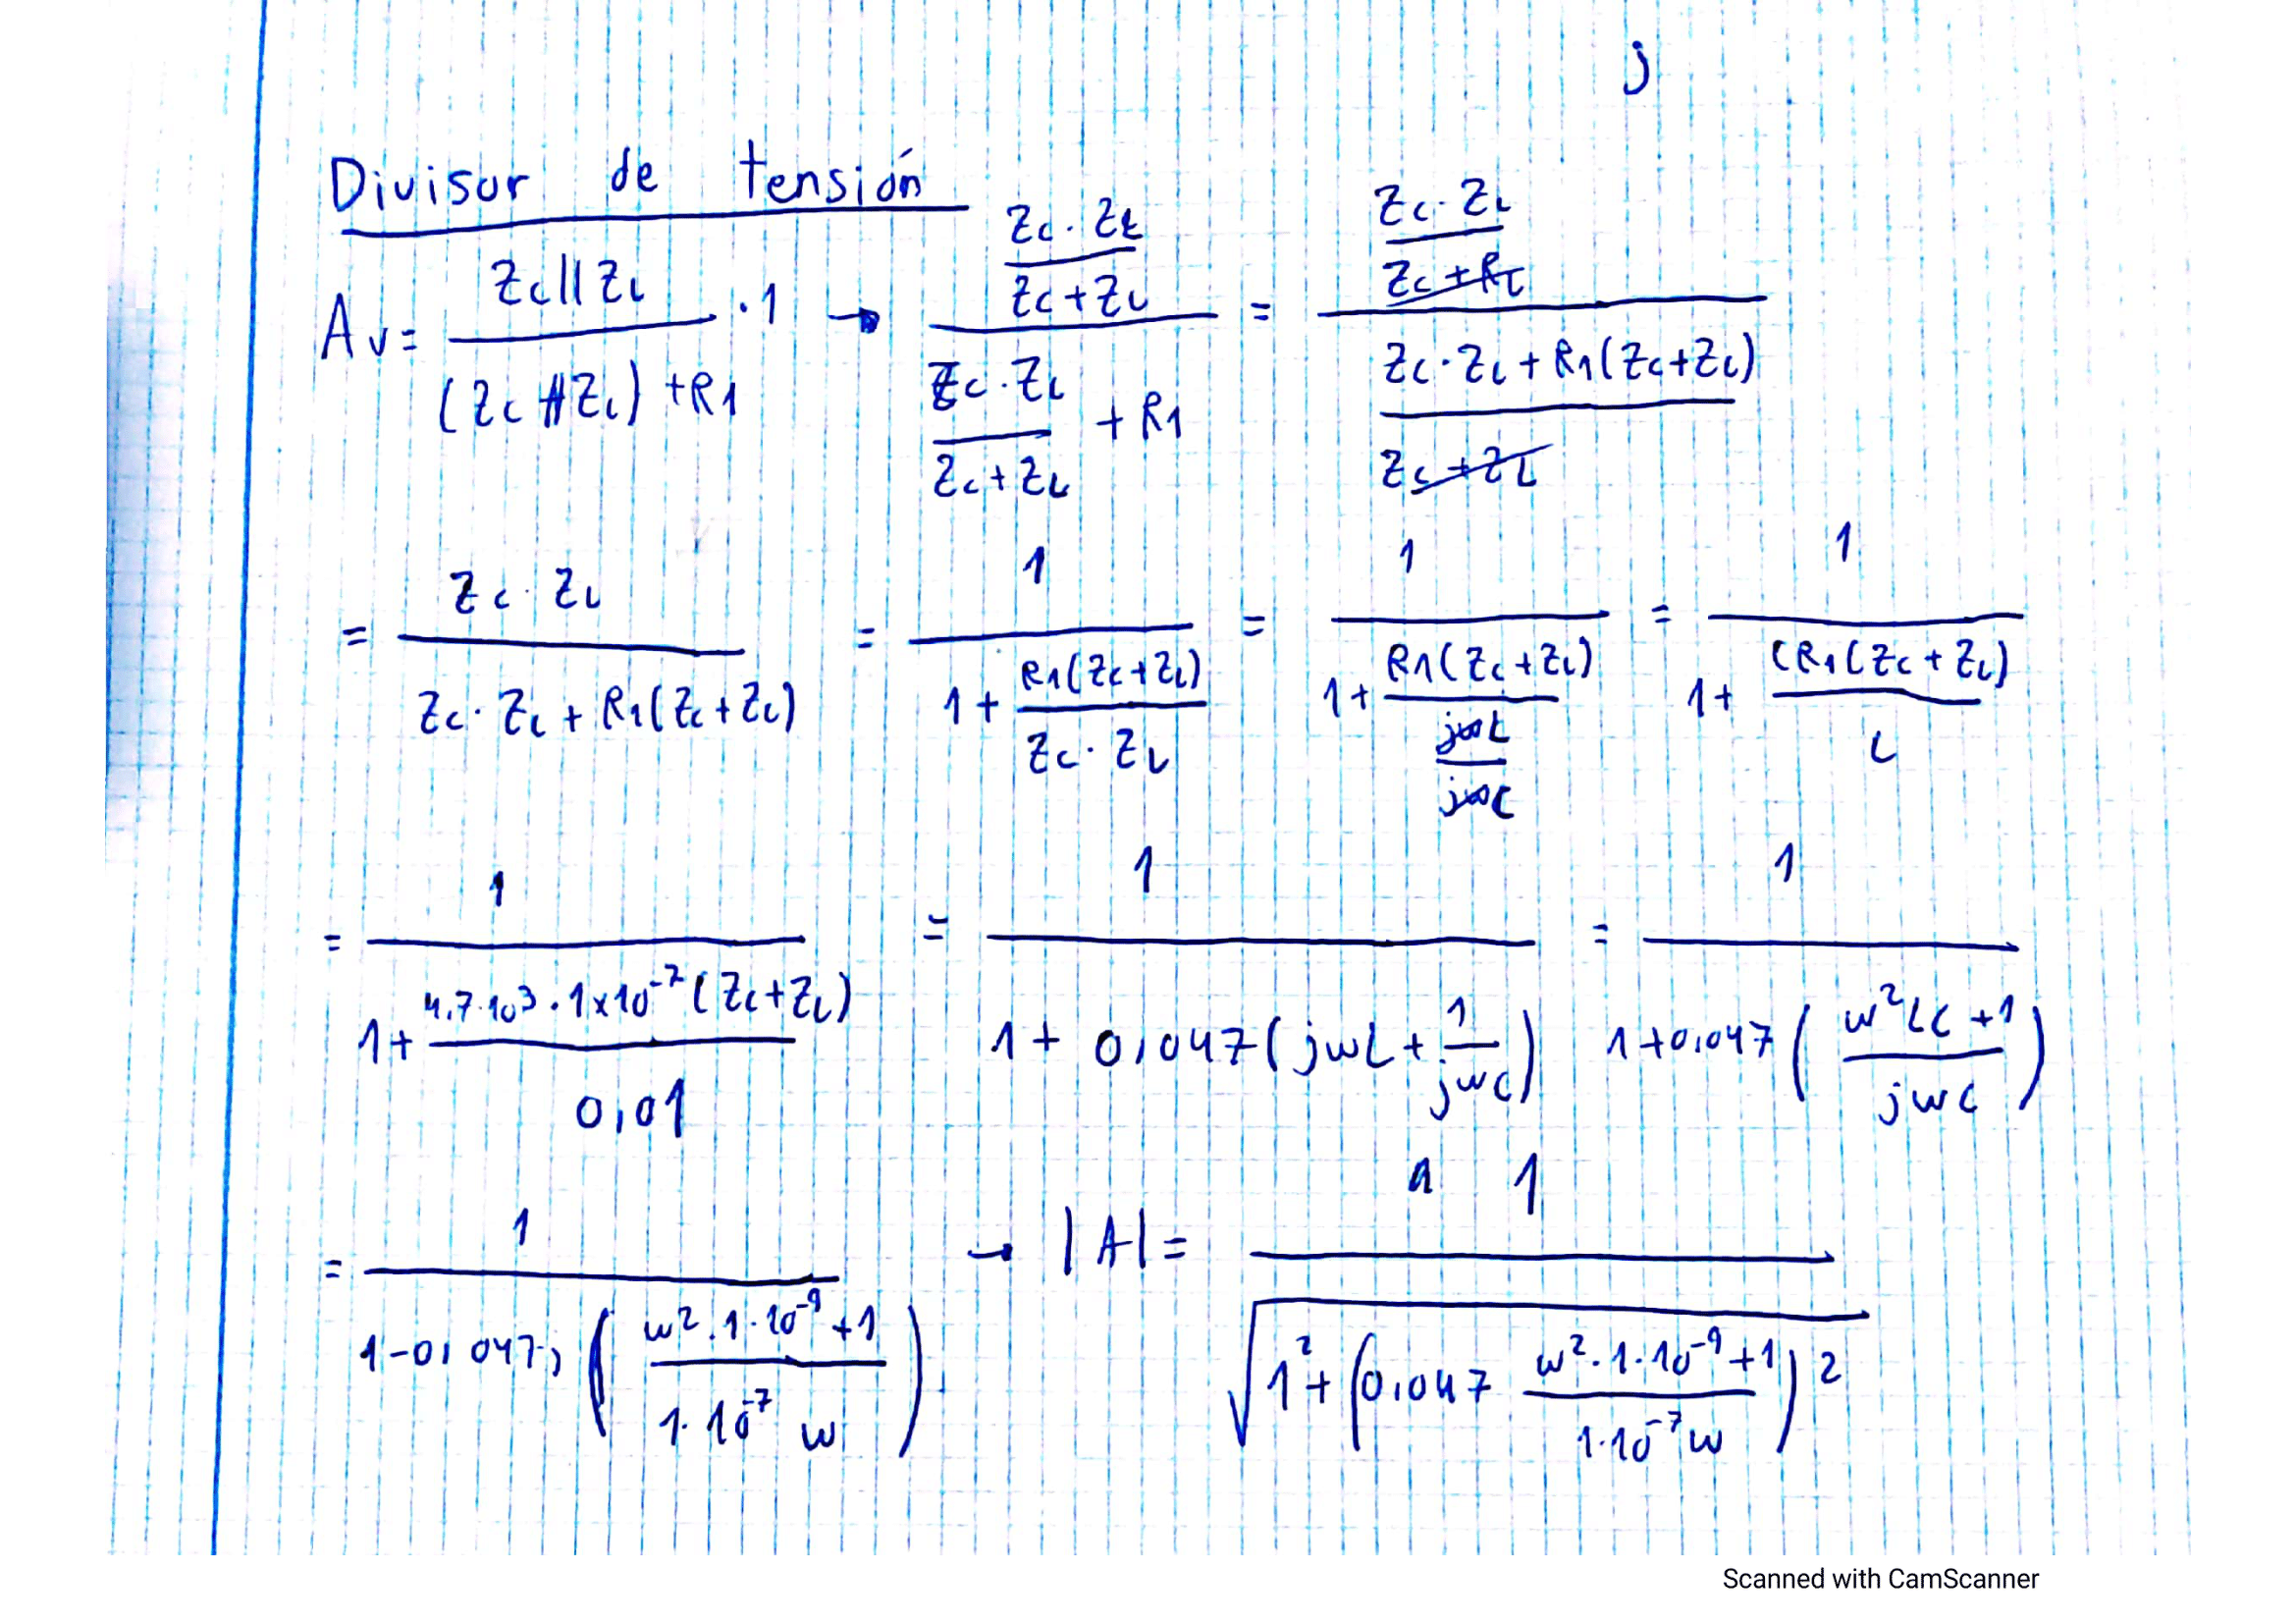 j
Divisor de tensión
Av = \frac{Zc||ZL}{(Zc#ZL)+R1} · 1 → \frac{\frac{Zc·ZL}{Zc+ZL}}{\frac{Zc·ZL}{Zc+ZL} + R1} = \frac{\frac{Zc·ZL}{Zc+RL}}{\frac{Zc·ZL+R1(Zc+ZL)}{Zc+ZL}}
= \frac{Zc·ZL}{Zc·ZL + R1(Zc+ZL)} = \frac{1}{1+\frac{R1(Zc+ZL)}{Zc·ZL}} = \frac{1}{1+\frac{R1(Zc+ZL)}{\frac{jωL}{jωC}}} = \frac{1}{1+\frac{CR1(Zc+ZL)}{L}}
= \frac{1}{1+\frac{4,7·10^3·1x10^{-7}(Zc+ZL)}{0,01}} = \frac{1}{1+0,047(jwL+\frac{1}{jwC})} = \frac{1}{1+0,047(\frac{w^2LC+1}{jwC})}
= \frac{1}{1-0,047j(\frac{w^2·1·10^{-9}+1}{1·10^{-7}w})} → |A| = \frac{1}{\sqrt{1^2+(0,047\frac{w^2·1·10^{-9}+1}{1·10^{-7}w})^2}}
Scanned with CamScanner